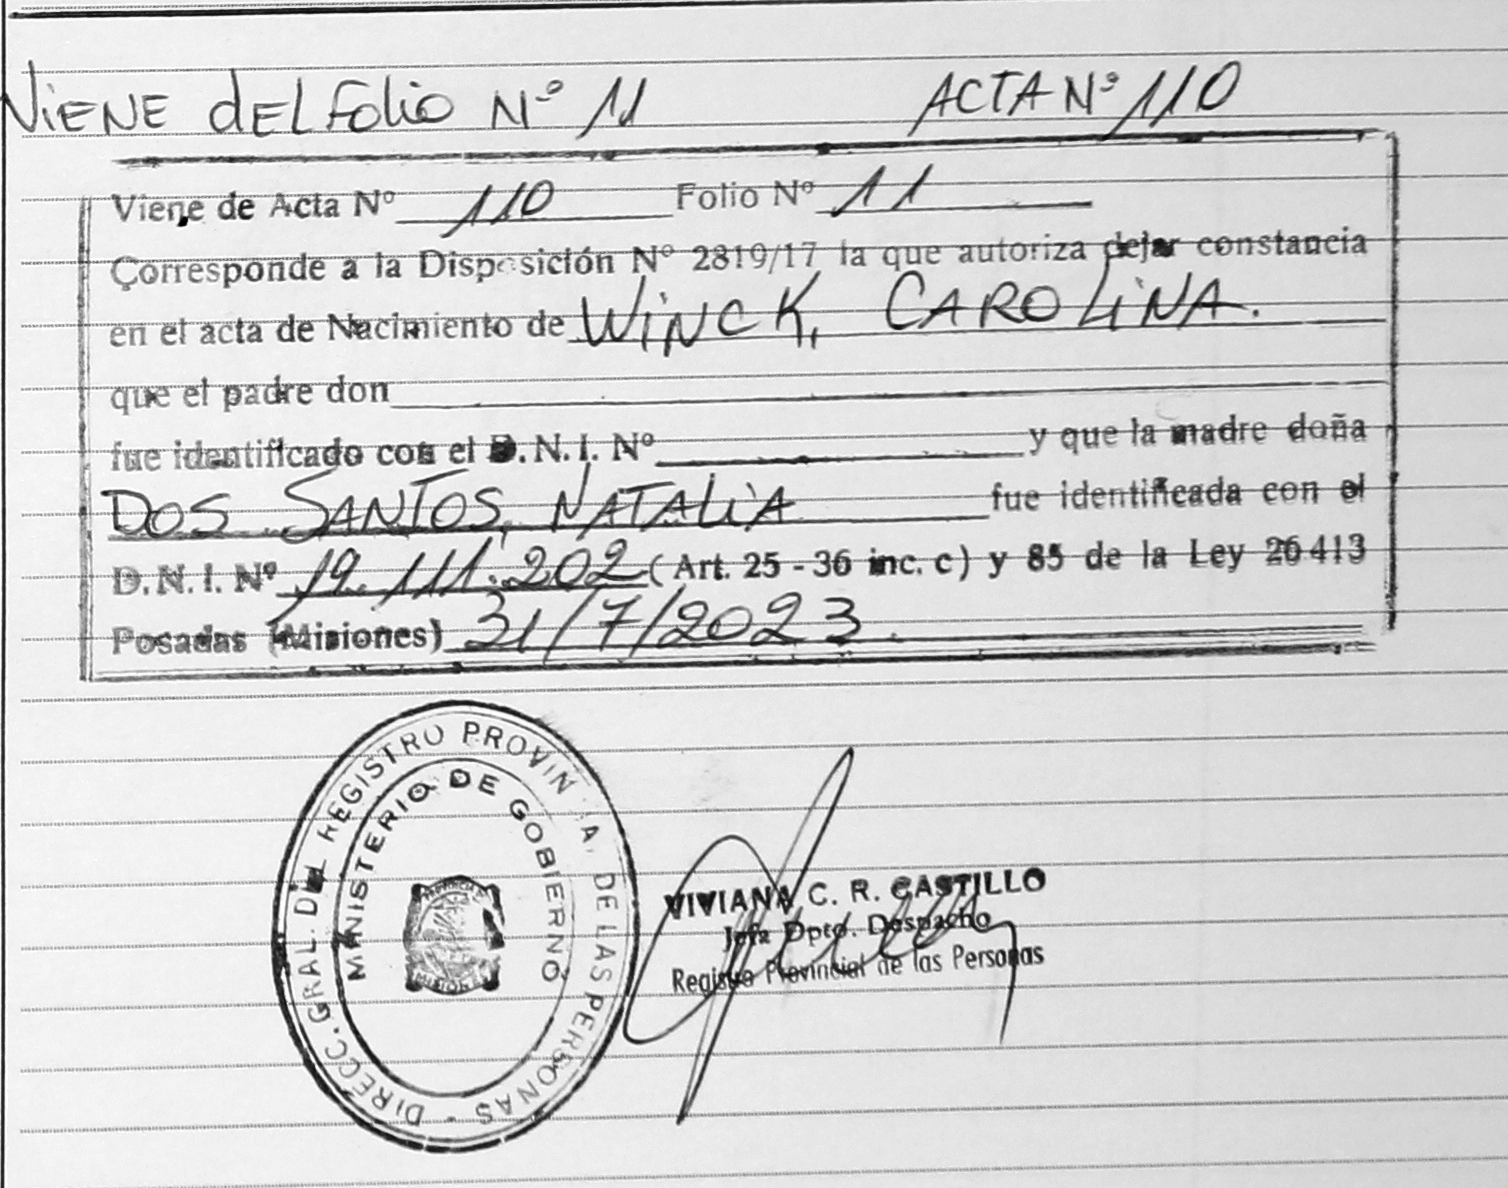 VIENE DEL FOLIO Nº 11 ACTA Nº 110
Viene de Acta Nº 110 Folio Nº 11
Corresponde a la Disposición Nº 2819/17 la que autoriza dejar constancia
en el acta de Nacimiento de WINCK, CAROLINA.
que el padre don
fue identificado con el D.N.I. Nº y que la madre doña
DOS SANTOS, NATALIA fue identificada con el
D.N.I. Nº 19.111.202 (Art. 25 - 36 inc. c) y 85 de la Ley 26413
Posadas (Misiones) 31/7/2023.
DIRECC. GRAL. DEL REGISTRO PROVIN A. DE LAS PERSONAS -
MINISTERIO DE GOBIERNO
PROVINCIA
MISIONES
VIVIANA C. R. CASTILLO
Jefa Dpto. Despacho
Registro Provincial de las Personas